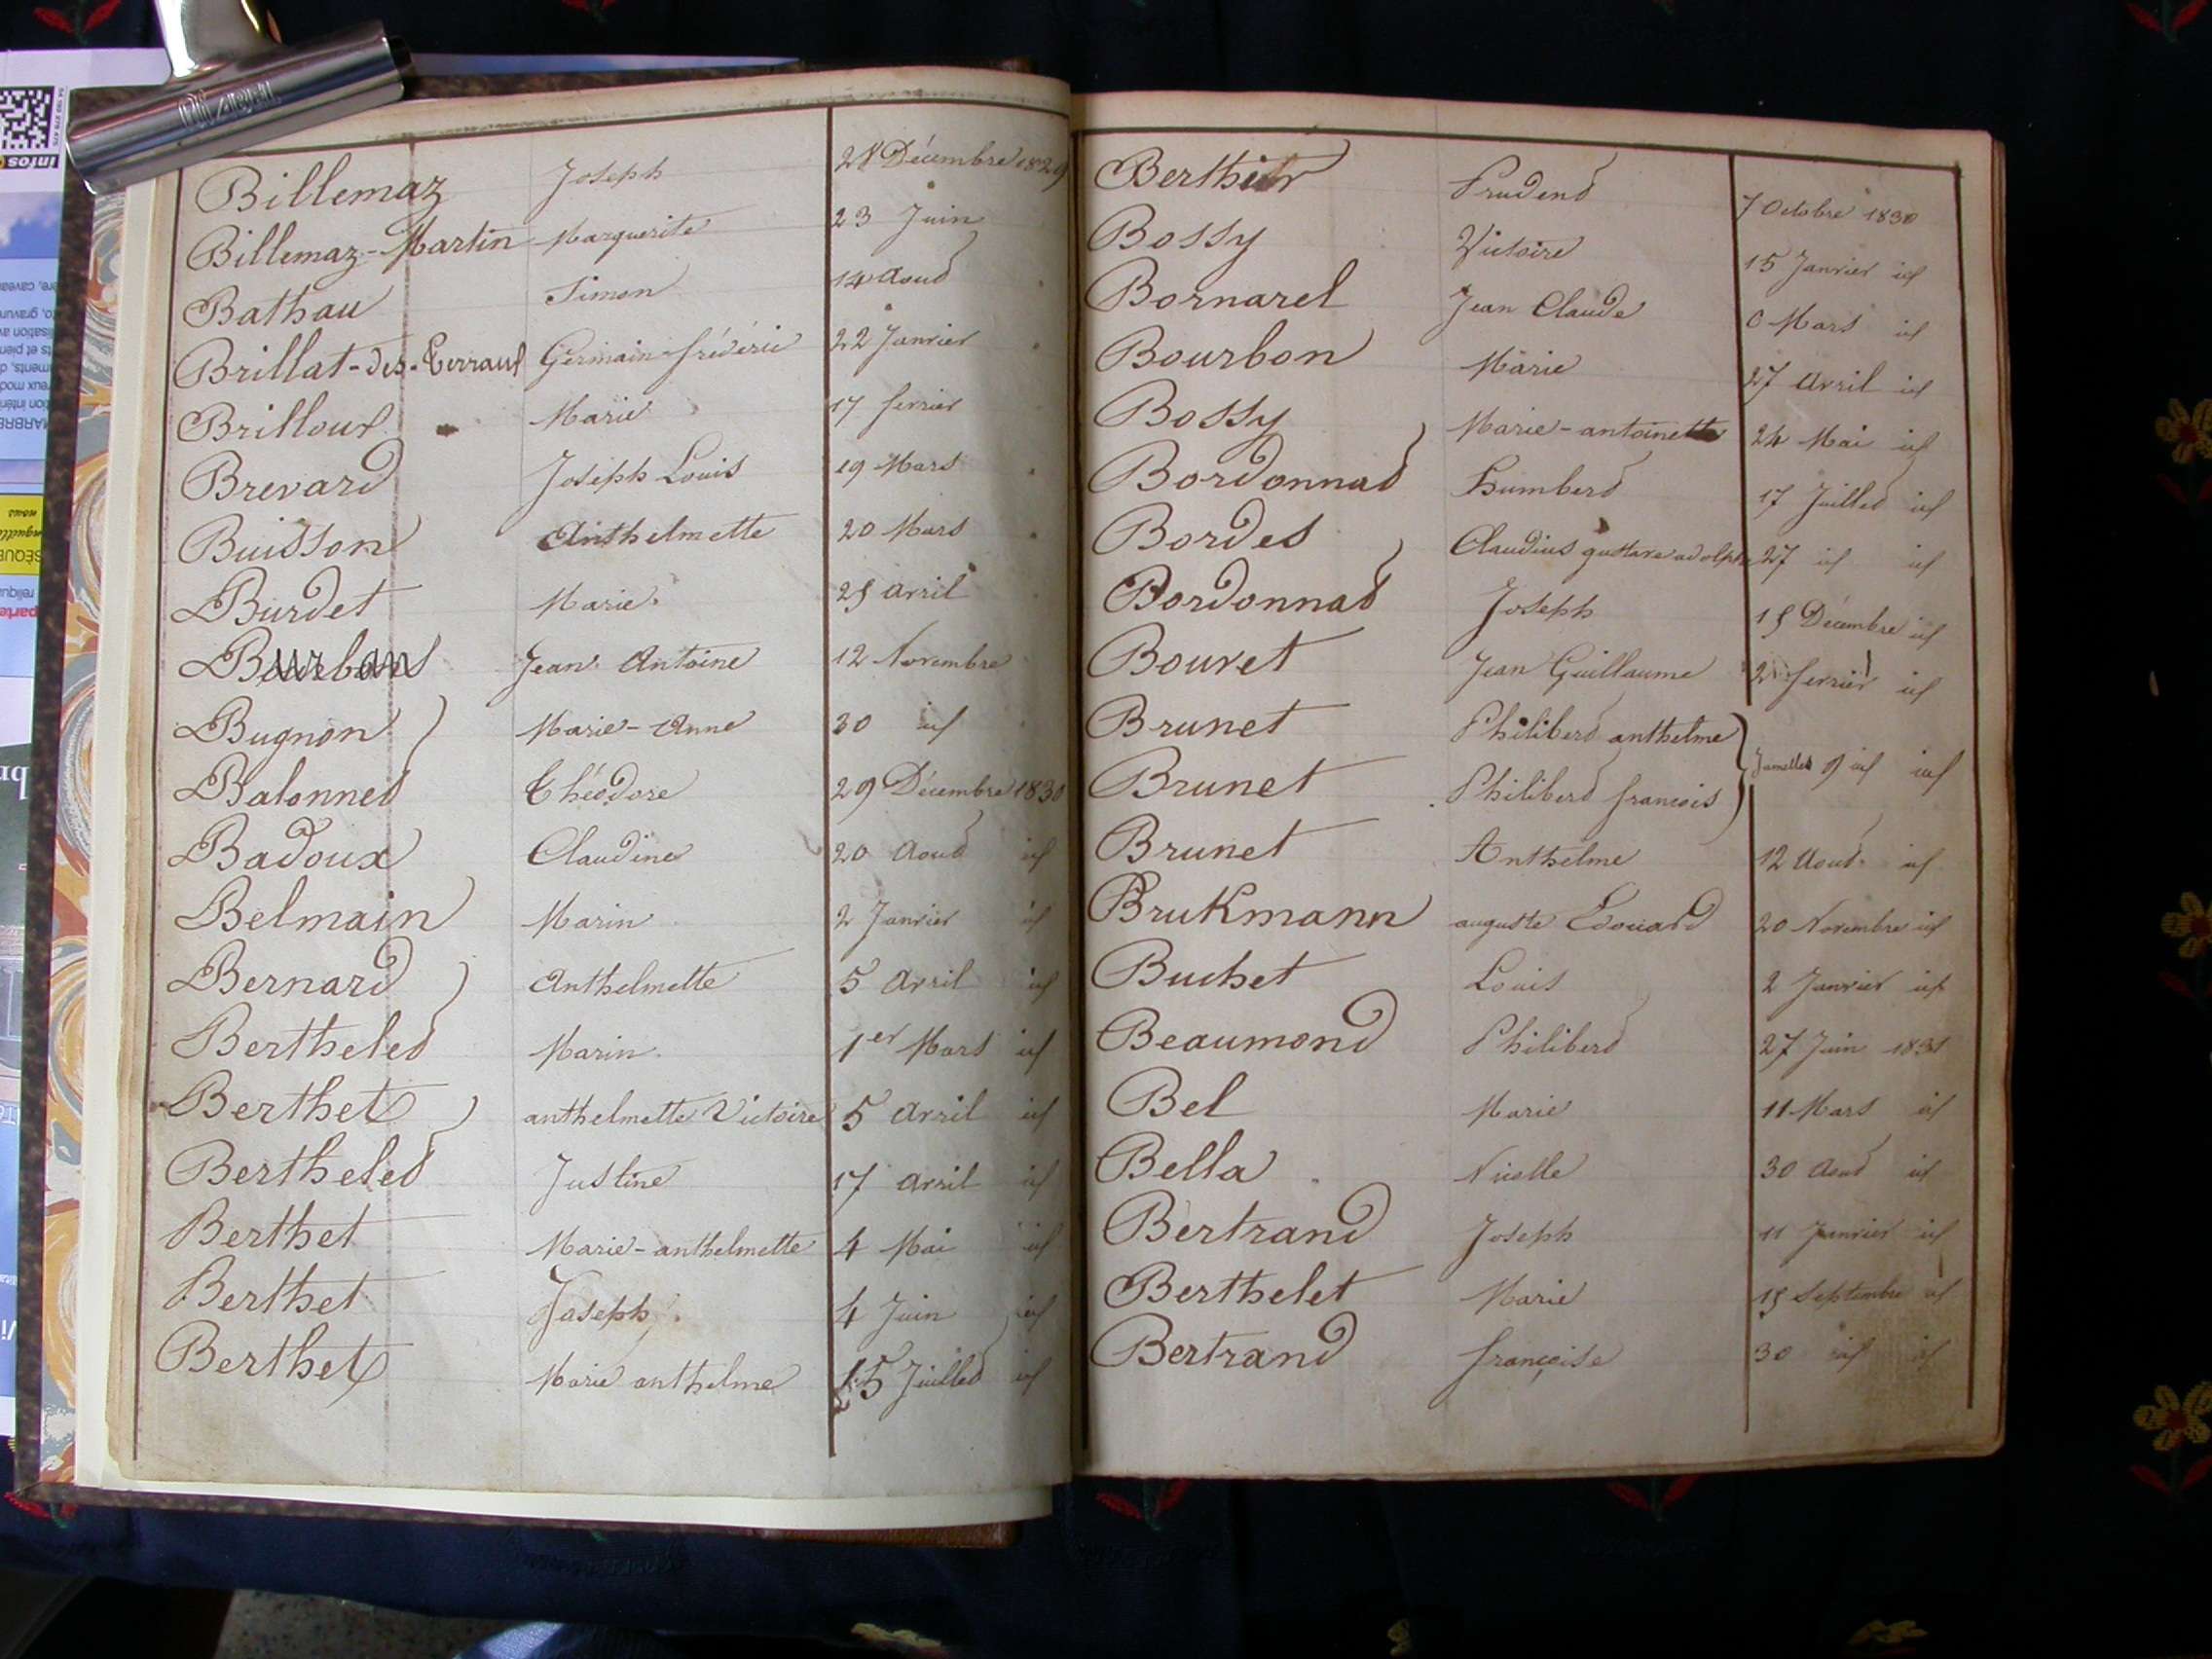 Billemaz Joseph 28 Décembre 1829
Billemaz-Martin Marguerite 23 Juin
Bathau Simon 14 Aout
Brillat-des-Terraux Germain-frédéric 22 Janvier
Brilloux Marie 17 fevrier
Brevard Joseph Louis 19 Mars
Buisson Anthelmette 20 Mars
Burdet Marie 25 avril
Jean Antoine 12 Novembre
Bugnon Marie-Anne 30 id
Balonnet Théodore 29 Décembre 1830
Badoux Claudine 20 Aout id
Belmain Marin 2 Janvier id
Bernard Anthelmette 5 Avril id
Berthelet Marin 1er Mars id
Berthet anthelmette Victoire 5 Avril id
Berthelet Justine 17 avril id
Berthet Marie-anthelmette 4 Mai id
Berthet Joseph 4 Juin id
Berthet Marie anthelme 15 Juillet id
Berthier Prudent 7 Octobre 1830
Bossy Victoire 15 Janvier id
Bornarel Jean Claude Mars id
Bourbon Marie 27 avril id
Bossy Marie-antoinette 24 Mai id
Bordonnat Humbert 17 Juillet id
Bordes Claudius gustave adolphe 27 id id
Bordonnat Joseph 15 Décembre id
Bouvet Jean Guillaume 2 fevrier id
Brunet Philibert anthelme
Jumelles 9 id id
Brunet Philibert francois
Brunet Anthelme 12 Aout id
BruKmann auguste Edouard 20 Novembre id
Buchet Louis 2 Janvier id
Beaumond Philibert 27 Juin 1831
Bel Marie 11 Mars id
Bella 30 Aout id
Bertrand Joseph 11 Janvier id
Berthelet Marie 15 Septembre id
Bertrand françoise 30 id id